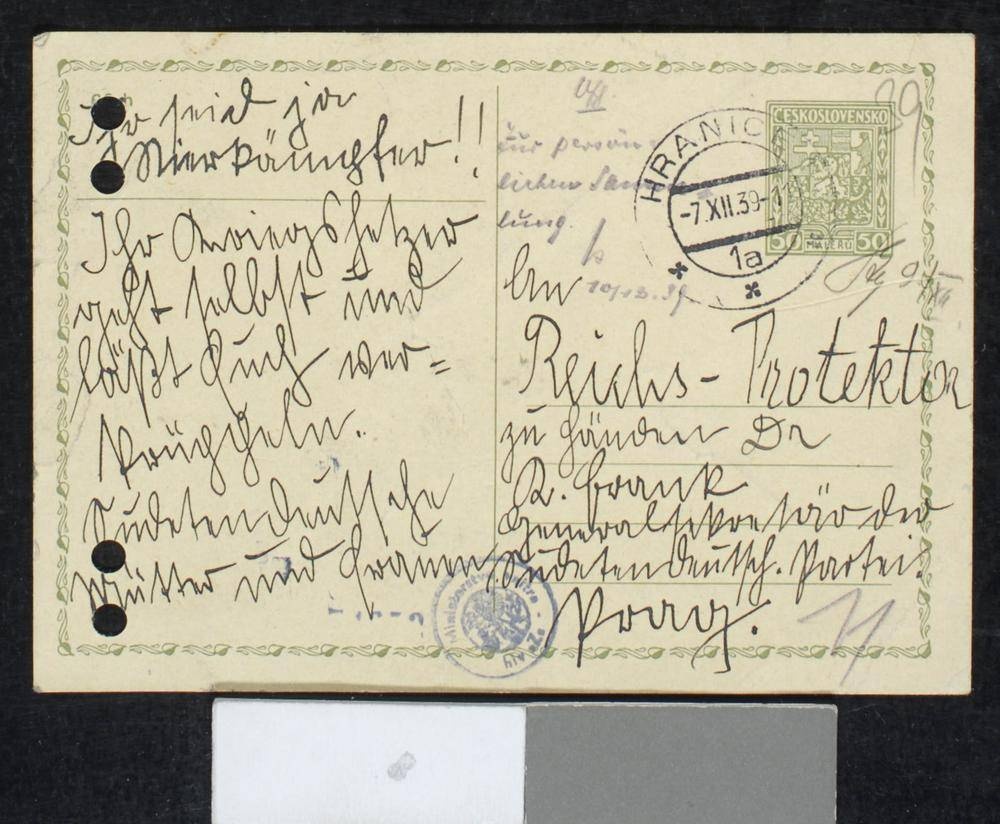 Ihr seid ja
Bierkämpfer!!
Ihr Kriegshetzer
geht selbst und
läßt Euch ver=
krüppeln.
Sudetendeutsche
Mütter und Frauen.
zur persön-
lichen Samm-
lung.
10/12.39
HRANICE
-7.XII.39-11
1a
ČESKOSLOVENSKO
50 HALÉŘŮ 50
39
An
Reichs-Protektor
zu Händen Dr
K. Frank
Generalsekretär der
Sudetendeutsch. Partei.
Prag.